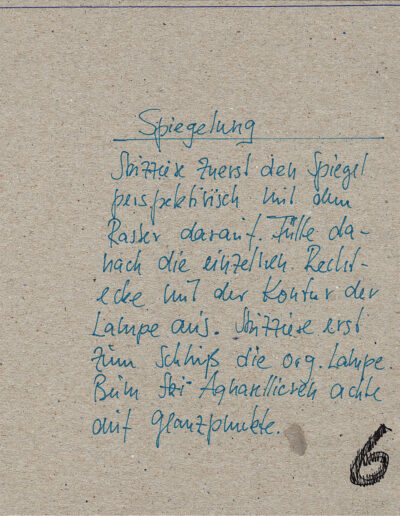 Spiegelung
Skizziere zuerst den Spiegel
perspektivisch mit dem
Raster darauf. Fülle da-
nach die einzelnen Recht-
ecke mit der Kontur der
Lampe aus. Skizziere erst
zum Schluß die org. Lampe.
Beim Aquarellieren achte
auf Glanzpunkte.
6